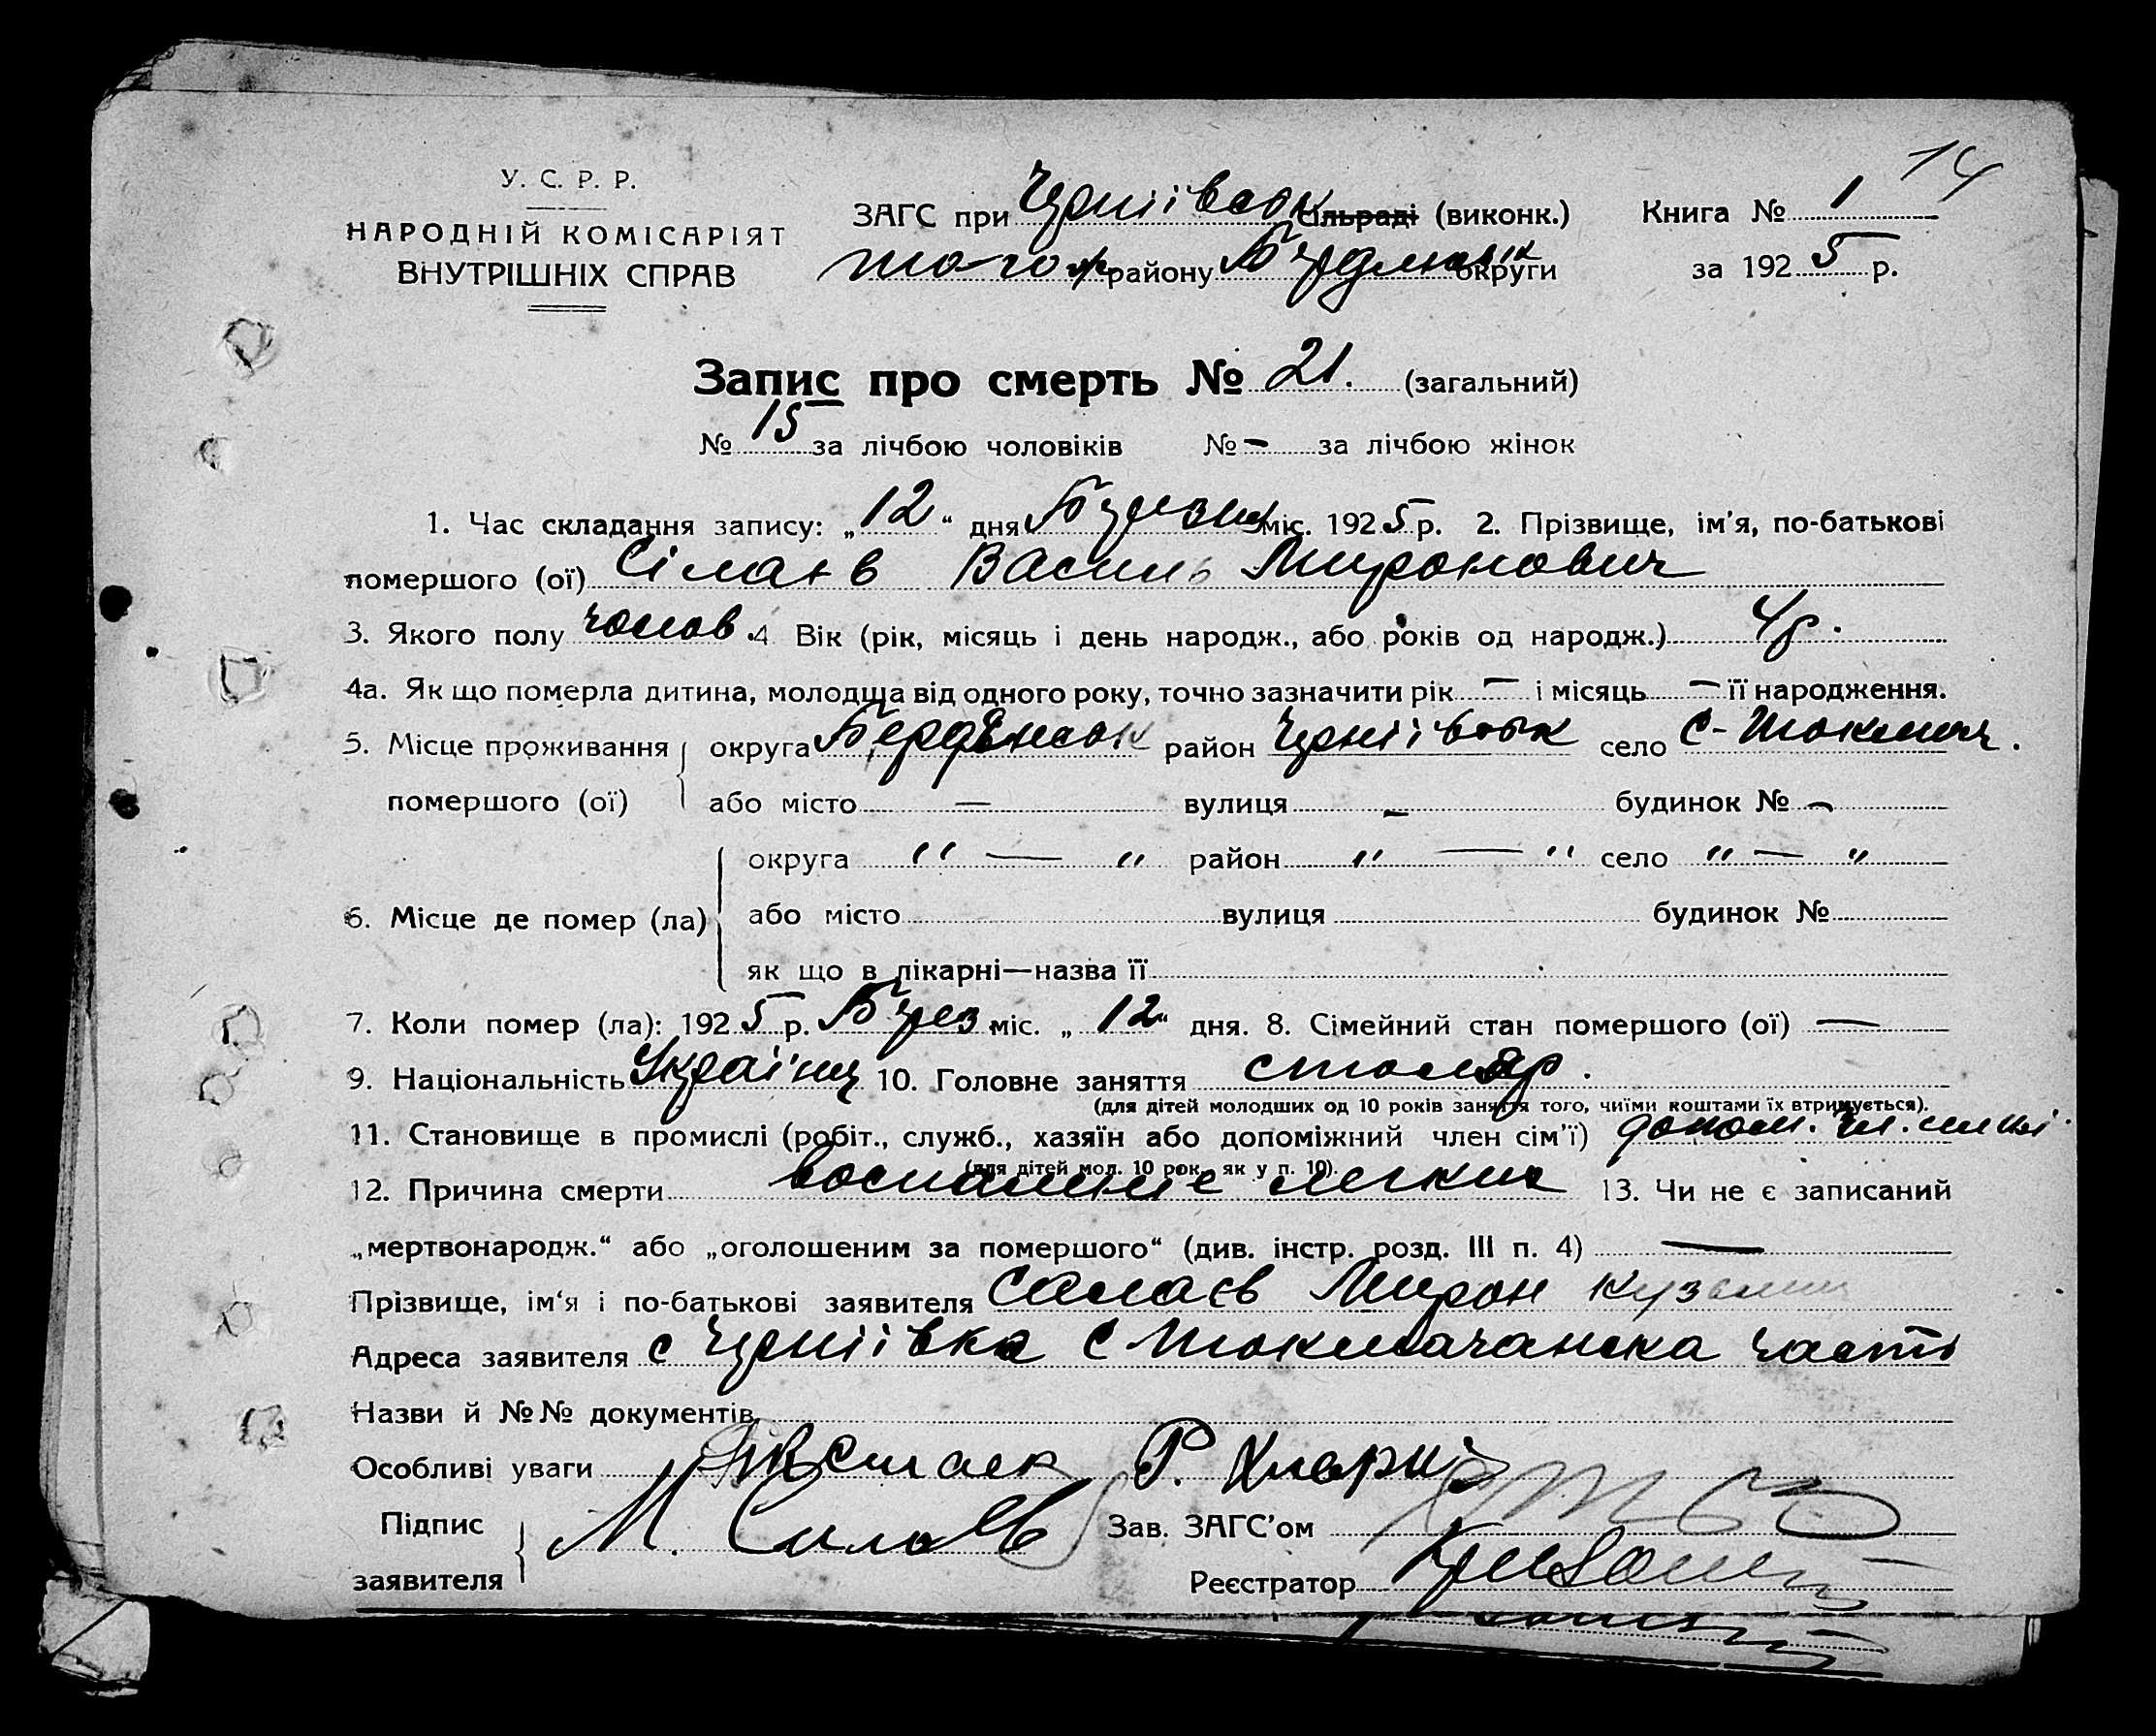 14
У. С. Р. Р.
НАРОДНІЙ КОМІСАРІЯТ
ВНУТРІШНІХ СПРАВ
ЗАГС при сільраді (виконк.) Книга № 1
району округи за 1925 р.
Запис про смерть № 21. (загальний)
№ 15 за лічбою чоловіків № – за лічбою жінок
1. Час складання запису: „12“ дня міс. 1925 р. 2. Прізвище, ім’я, по-батькові
помершого (ої) Сілаєв Василь Миронович
3. Якого полу чолов. 4 Вік (рік, місяць і день народж., або років од народж.) 4 р.
4а. Як що померла дитина, молодща від одного року, точно зазначити рік – і місяць – її народження.
5. Місце проживання помершого (ої) округа Бердянськ район село С-Токмач.
або місто — вулиця – будинок № –
6. Місце де помер (ла) округа " — " район " — " село " — "
або місто вулиця будинок №
як що в лікарні—назва її
7. Коли помер (ла): 1925 р. Берез міс. „12“ дня. 8. Сімейний стан помершого (ої) —
9. Національність Україн 10. Головне заняття столяр.
(для дітей молодших од 10 років заняття того, чиїми коштами їх втримується).
11. Становище в промислі (робіт., служб., хазяїн або допоміжний член сім’ї) допом. чл. сімї.
(для дітей мол. 10 рок. як у п. 10).
12. Причина смерти воспаление легких 13. Чи не є записаний
„мертвонародж.“ або „оголошеним за помершого“ (див. інстр. розд. III п. 4) —
Прізвище, ім‘я і по-батькові заявителя Сілаєв Мирон Кузьмич
Адреса заявителя с Чернііовка С Токмачанска часть
Назви й №№ документів
Особливі уваги
Підпис заявителя М. Силаев Зав. ЗАГС’ом
Реєстратор